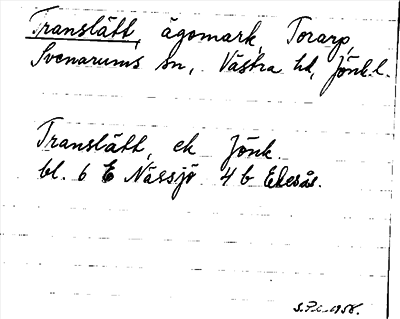 Translätt, ägomark, Torarp,
Svenarums sn, Västra hd, Jönk.l.
Translätt, ek Jönk.
bl. 6 E Nässjö 4 b Ekesås.
S.P.L. 1958.